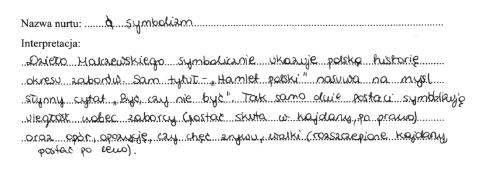 Nazwa nurtu: symbolizm
Interpretacja:
Dzieło Malczewskiego symbolicznie ukazuje polską historię
okresu zaborów. Sam tytuł - "Hamlet polski" nasuwa na myśl
słynny cytat "Być, czy nie być". Tak samo dwie postaci symbolizują
uległość wobec zaborcy (postać skuta w kajdany, po prawo)
oraz opór, opozycję, czy chęć zrywu, walki (rozszczepione kajdany,
postać po lewo).